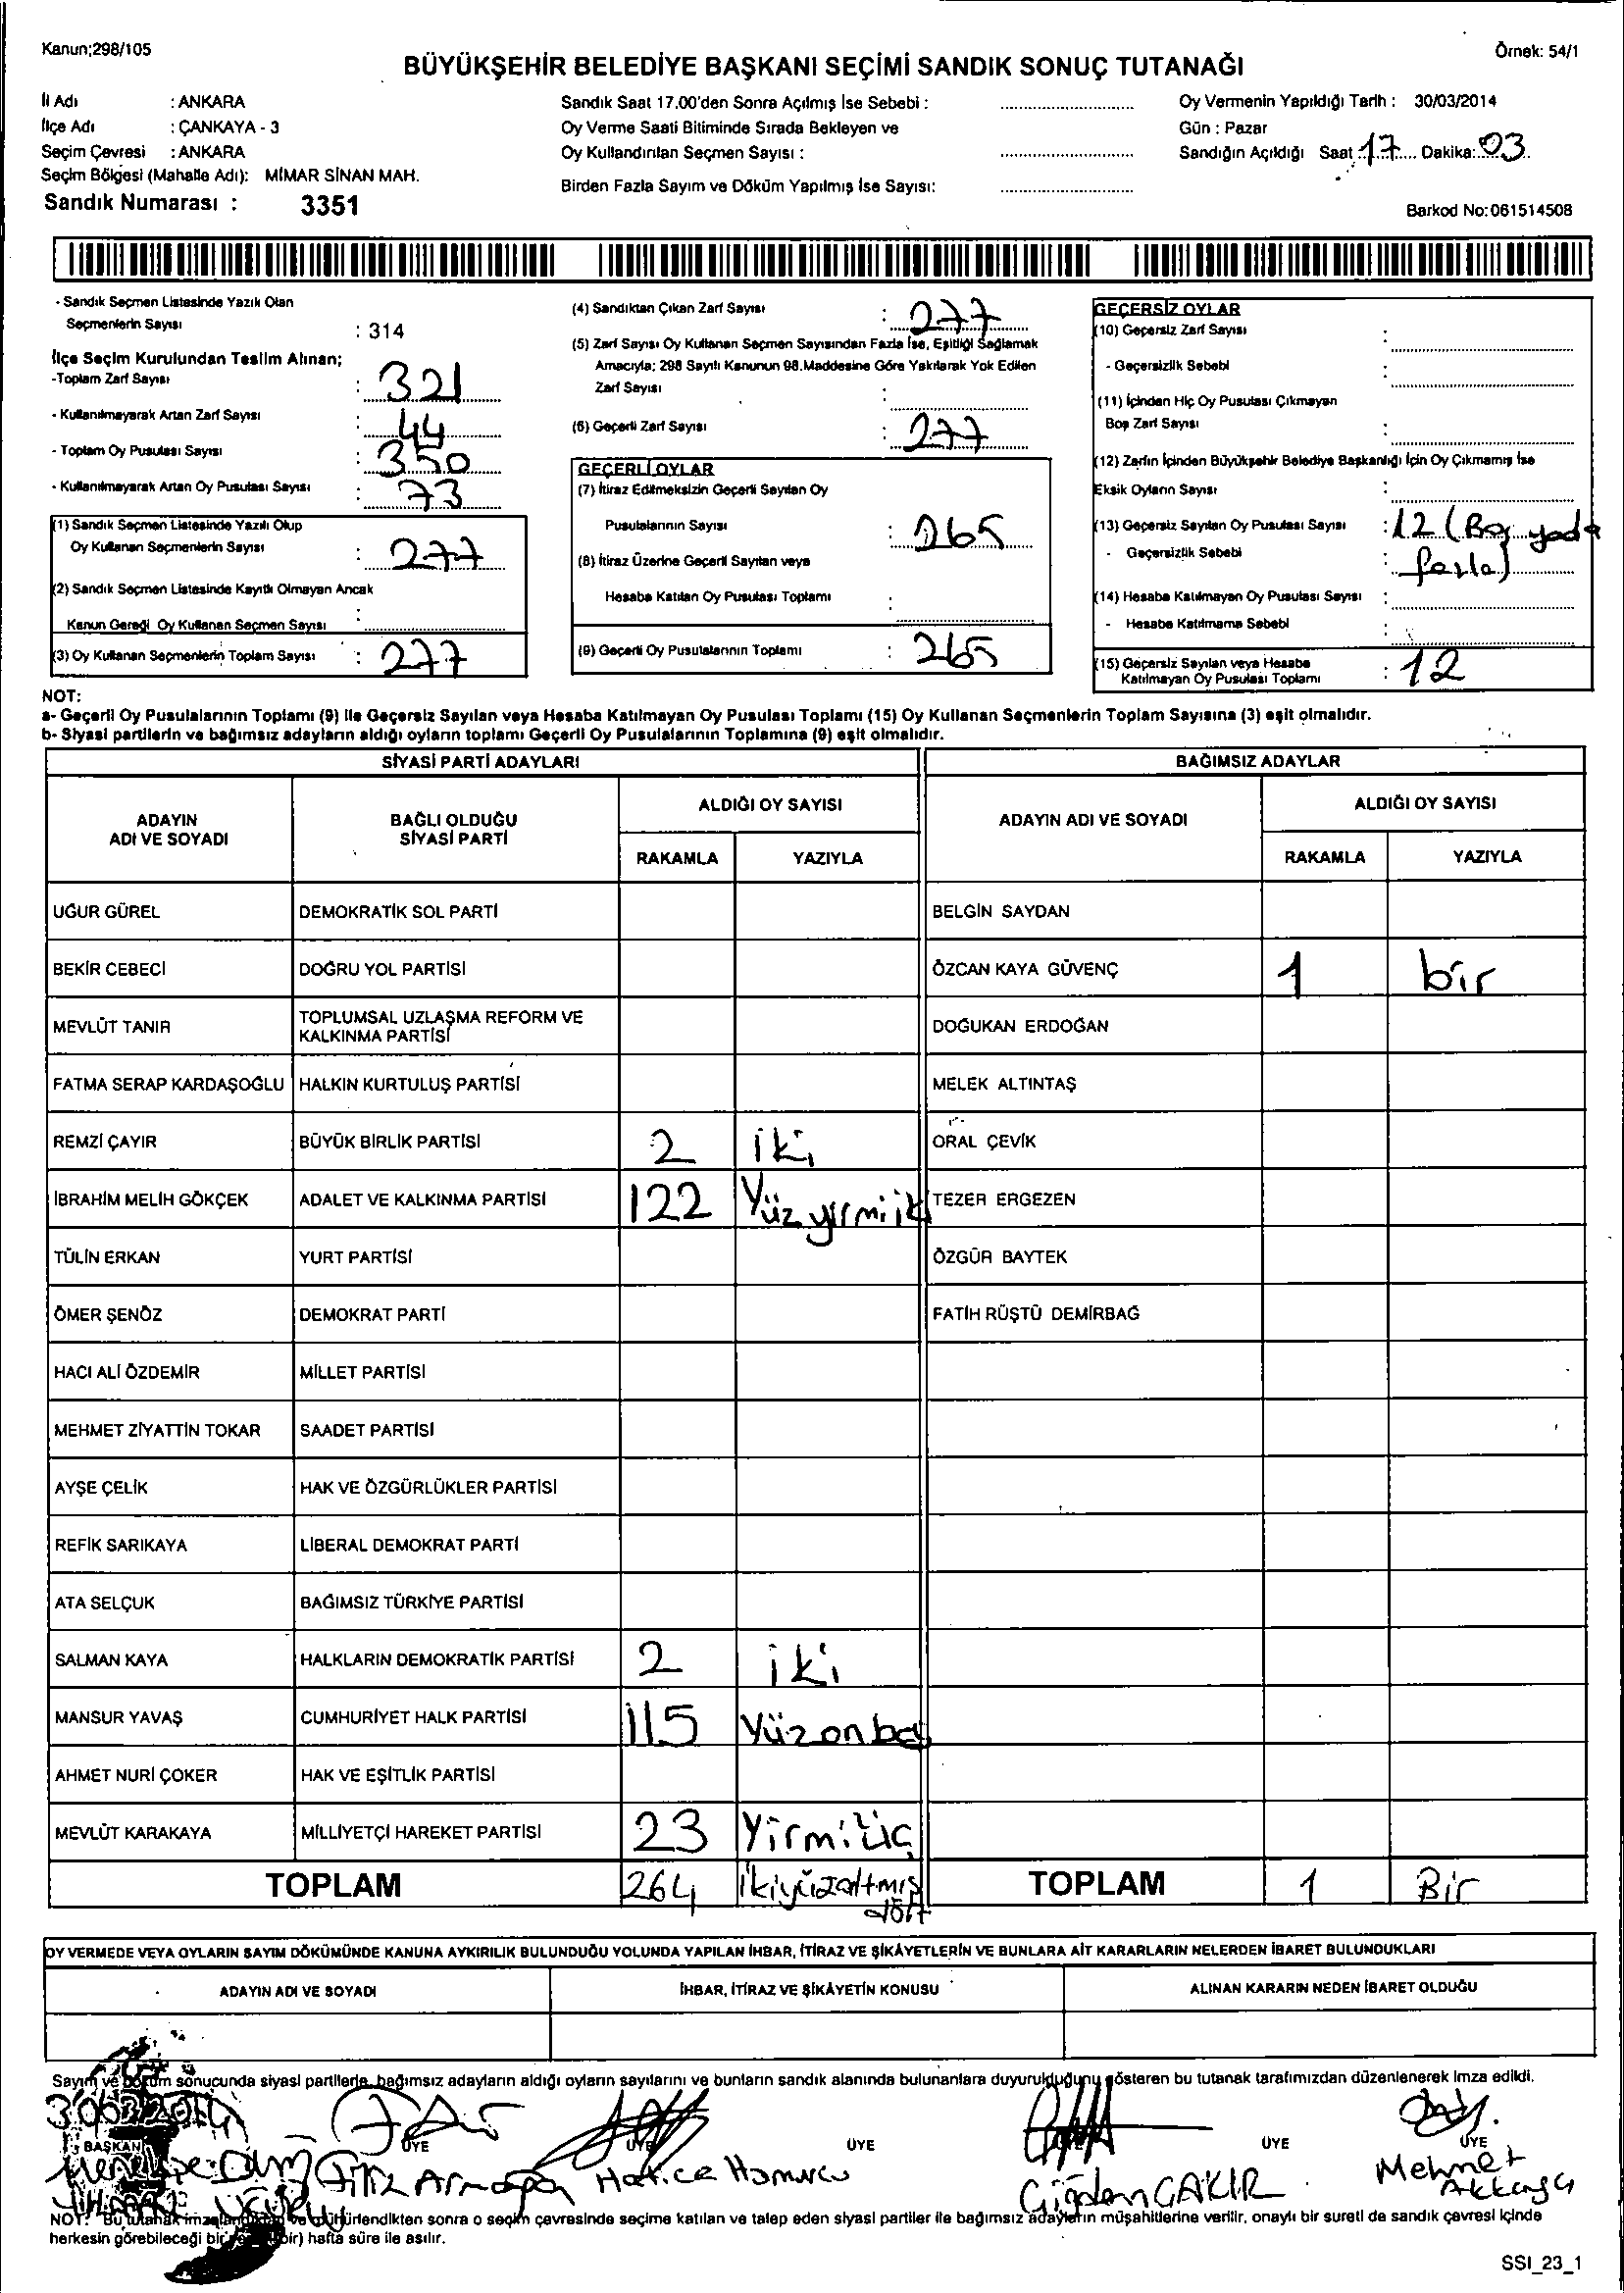 Kanun;298/105
Örnek: 54/1
BÜYÜKŞEHİR BELEDİYE BAŞKANI SEÇİMİ SANDIK SONUÇ TUTANAĞI
İl Adı : ANKARA
İlçe Adı : ÇANKAYA - 3
Seçim Çevresi : ANKARA
Seçim Bölgesi (Mahalle Adı): MİMAR SİNAN MAH.
Sandık Numarası : 3351
Sandık Saat 17.00'den Sonra Açılmış İse Sebebi :
Oy Verme Saati Bitiminde Sırada Bekleyen ve
Oy Kullandırılan Seçmen Sayısı :
Birden Fazla Sayım ve Döküm Yapılmış İse Sayısı:
Oy Vermenin Yapıldığı Tarih : 30/03/2014
Gün : Pazar
Sandığın Açıldığı Saat 17 Dakika: 03
Barkod No:061514508
- Sandık Seçmen Listesinde Yazılı Olan
Seçmenlerin Sayısı : 314
İlçe Seçim Kurulundan Teslim Alınan;
-Toplam Zarf Sayısı : 321
- Kullanılmayarak Artan Zarf Sayısı : 44
- Toplam Oy Pusulası Sayısı : 350
- Kullanılmayarak Artan Oy Pusulası Sayısı : 73
(1) Sandık Seçmen Listesinde Yazılı Olup
Oy Kullanan Seçmenlerin Sayısı : 277
(2) Sandık Seçmen Listesinde Kayıtlı Olmayan Ancak
Kanun Gereği Oy Kullanan Seçmen Sayısı :
(3) Oy Kullanan Seçmenlerin Toplam Sayısı : 277
(4) Sandıktan Çıkan Zarf Sayısı : 277
(5) Zarf Sayısı Oy Kullanan Seçmen Sayısından Fazla İse, Eşitliği Sağlamak
Amacıyla; 298 Sayılı Kanunun 98.Maddesine Göre Yakılarak Yok Edilen
Zarf Sayısı :
(6) Geçerli Zarf Sayısı : 277
GEÇERLİ OYLAR
(7) İtiraz Edilmeksizin Geçerli Sayılan Oy
Pusulalarının Sayısı : 265
(8) İtiraz Üzerine Geçerli Sayılan veya
Hesaba Katılan Oy Pusulası Toplamı :
(9) Geçerli Oy Pusulalarının Toplamı : 265
GEÇERSİZ OYLAR
(10) Geçersiz Zarf Sayısı :
- Geçersizlik Sebebi :
(11) İçinden Hiç Oy Pusulası Çıkmayan
Boş Zarf Sayısı :
(12) Zarfın İçinden Büyükşehir Belediye Başkanlığı İçin Oy Çıkmamış İse
Eksik Oyların Sayısı :
(13) Geçersiz Sayılan Oy Pusulası Sayısı : 12 (Boş yada
- Geçersizlik Sebebi : fazla)
(14) Hesaba Katılmayan Oy Pusulası Sayısı :
- Hesaba Katılmama Sebebi :
(15) Geçersiz Sayılan veya Hesaba
Katılmayan Oy Pusulası Toplamı : 12
NOT:
a- Geçerli Oy Pusulalarının Toplamı (9) ile Geçersiz Sayılan veya Hesaba Katılmayan Oy Pusulası Toplamı (15) Oy Kullanan Seçmenlerin Toplam Sayısına (3) eşit olmalıdır.
b- Siyasi partilerin ve bağımsız adayların aldığı oyların toplamı Geçerli Oy Pusulalarının Toplamına (9) eşit olmalıdır.
SİYASİ PARTİ ADAYLARI BAĞIMSIZ ADAYLAR
ADAYIN ADI VE SOYADI BAĞLI OLDUĞU SİYASİ PARTİ ALDIĞI OY SAYISI ADAYIN ADI VE SOYADI ALDIĞI OY SAYISI
RAKAMLA YAZIYLA RAKAMLA YAZIYLA
UĞUR GÜREL DEMOKRATİK SOL PARTİ BELGİN SAYDAN
BEKİR CEBECİ DOĞRU YOL PARTİSİ ÖZCAN KAYA GÜVENÇ 1 bir
MEVLÜT TANIR TOPLUMSAL UZLAŞMA REFORM VE KALKINMA PARTİSİ DOĞUKAN ERDOĞAN
FATMA SERAP KARDAŞOĞLU HALKIN KURTULUŞ PARTİSİ MELEK ALTINTAŞ
REMZİ ÇAYIR BÜYÜK BİRLİK PARTİSİ 2 iki ORAL ÇEVİK
İBRAHİM MELİH GÖKÇEK ADALET VE KALKINMA PARTİSİ 122 Yüz yirmi iki TEZER ERGEZEN
TÜLİN ERKAN YURT PARTİSİ ÖZGÜR BAYTEK
ÖMER ŞENÖZ DEMOKRAT PARTİ FATİH RÜŞTÜ DEMİRBAĞ
HACI ALİ ÖZDEMİR MİLLET PARTİSİ
MEHMET ZİYATTİN TOKAR SAADET PARTİSİ
AYŞE ÇELİK HAK VE ÖZGÜRLÜKLER PARTİSİ
REFİK SARIKAYA LİBERAL DEMOKRAT PARTİ
ATA SELÇUK BAĞIMSIZ TÜRKİYE PARTİSİ
SALMAN KAYA HALKLARIN DEMOKRATİK PARTİSİ 2 iki
MANSUR YAVAŞ CUMHURİYET HALK PARTİSİ 115 Yüz on beş
AHMET NURİ ÇOKER HAK VE EŞİTLİK PARTİSİ
MEVLÜT KARAKAYA MİLLİYETÇİ HAREKET PARTİSİ 23 Yirmi üç
TOPLAM 264 ikiyüzaltmış dört TOPLAM 1 Bir
OY VERMEDE VEYA OYLARIN SAYIM DÖKÜMÜNDE KANUNA AYKIRILIK BULUNDUĞU YOLUNDA YAPILAN İHBAR, İTİRAZ VE ŞİKÂYETLERİN VE BUNLARA AİT KARARLARIN NELERDEN İBARET BULUNDUKLARI
ADAYIN ADI VE SOYADI İHBAR, İTİRAZ VE ŞİKÂYETİN KONUSU ALINAN KARARIN NEDEN İBARET OLDUĞU
Sayım ve döküm sonucunda siyasi partilerle, bağımsız adayların aldığı oyların sayılarını ve bunların sandık alanında bulunanlara duyurulduğunu gösteren bu tutanak tarafımızdan düzenlenerek imza edildi.
BAŞKAN ÜYE ÜYE ÜYE ÜYE ÜYE
Hatice Çiğdem ÇAKIR Mehmet
NOT: Bu tutanak ve mühürlendikten sonra o seçim çevresinde seçime katılan ve talep eden siyasi partiler ile bağımsız adayların müşahitlerine verilir, onaylı bir sureti de sandık çevresi içinde
herkesin görebileceği bir (bir) hafta süre ile asılır.
SSI_23_1